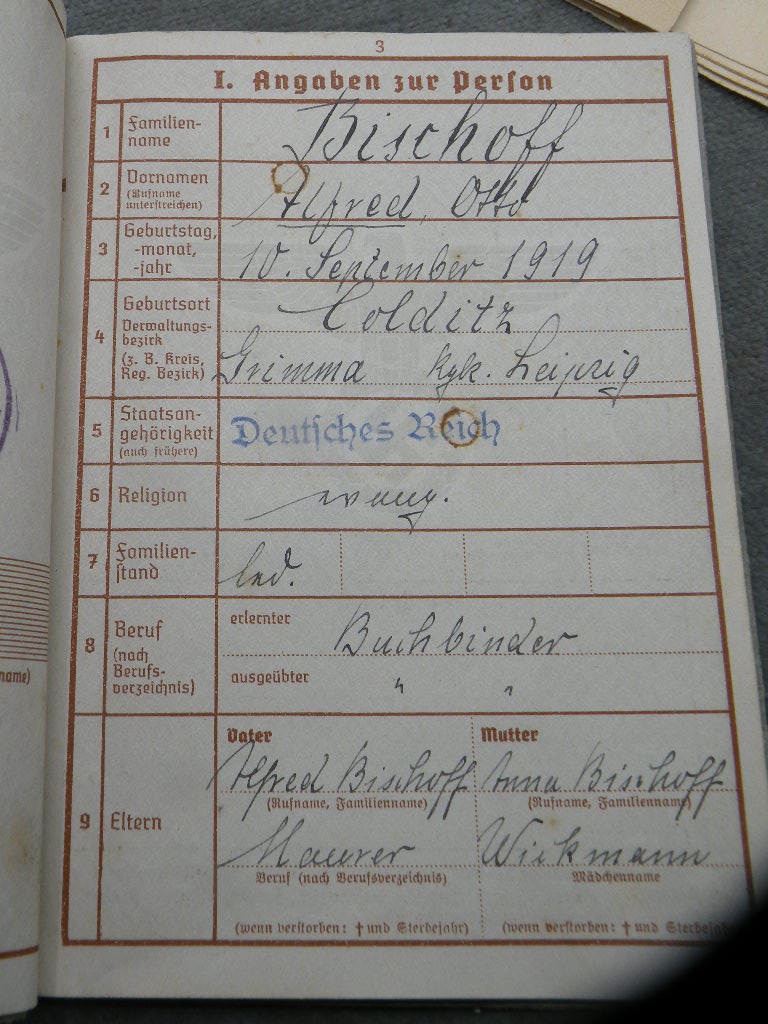 3
I. Angaben zur Person
1 Familien-
name
Bischoff
2 Vornamen
(Rufname
unterstreichen)
Alfred, Otto
3 Geburtstag,
-monat,
-jahr
10. September 1919
4 Geburtsort
Verwaltungs-
bezirk
(z. B. Kreis,
Reg. Bezirk)
Colditz
Grimma Leipzig
5 Staatsan-
gehörigkeit
(auch frühere)
Deutsches Reich
6 Religion
evang.
7 Familien-
stand
led.
8 Beruf
(nach
Berufs-
verzeichnis)
erlernter
Buchbinder
ausgeübter
" "
9 Eltern
Vater
Alfred Bischoff
(Rufname, Familienname)
Maurer
Beruf (nach Berufsverzeichnis)
(wenn verstorben: † und Sterbejahr)
Mutter
Anna Bischoff
(Rufname, Familienname)
Wiekmann
Mädchenname
(wenn verstorben: † und Sterbejah
name)